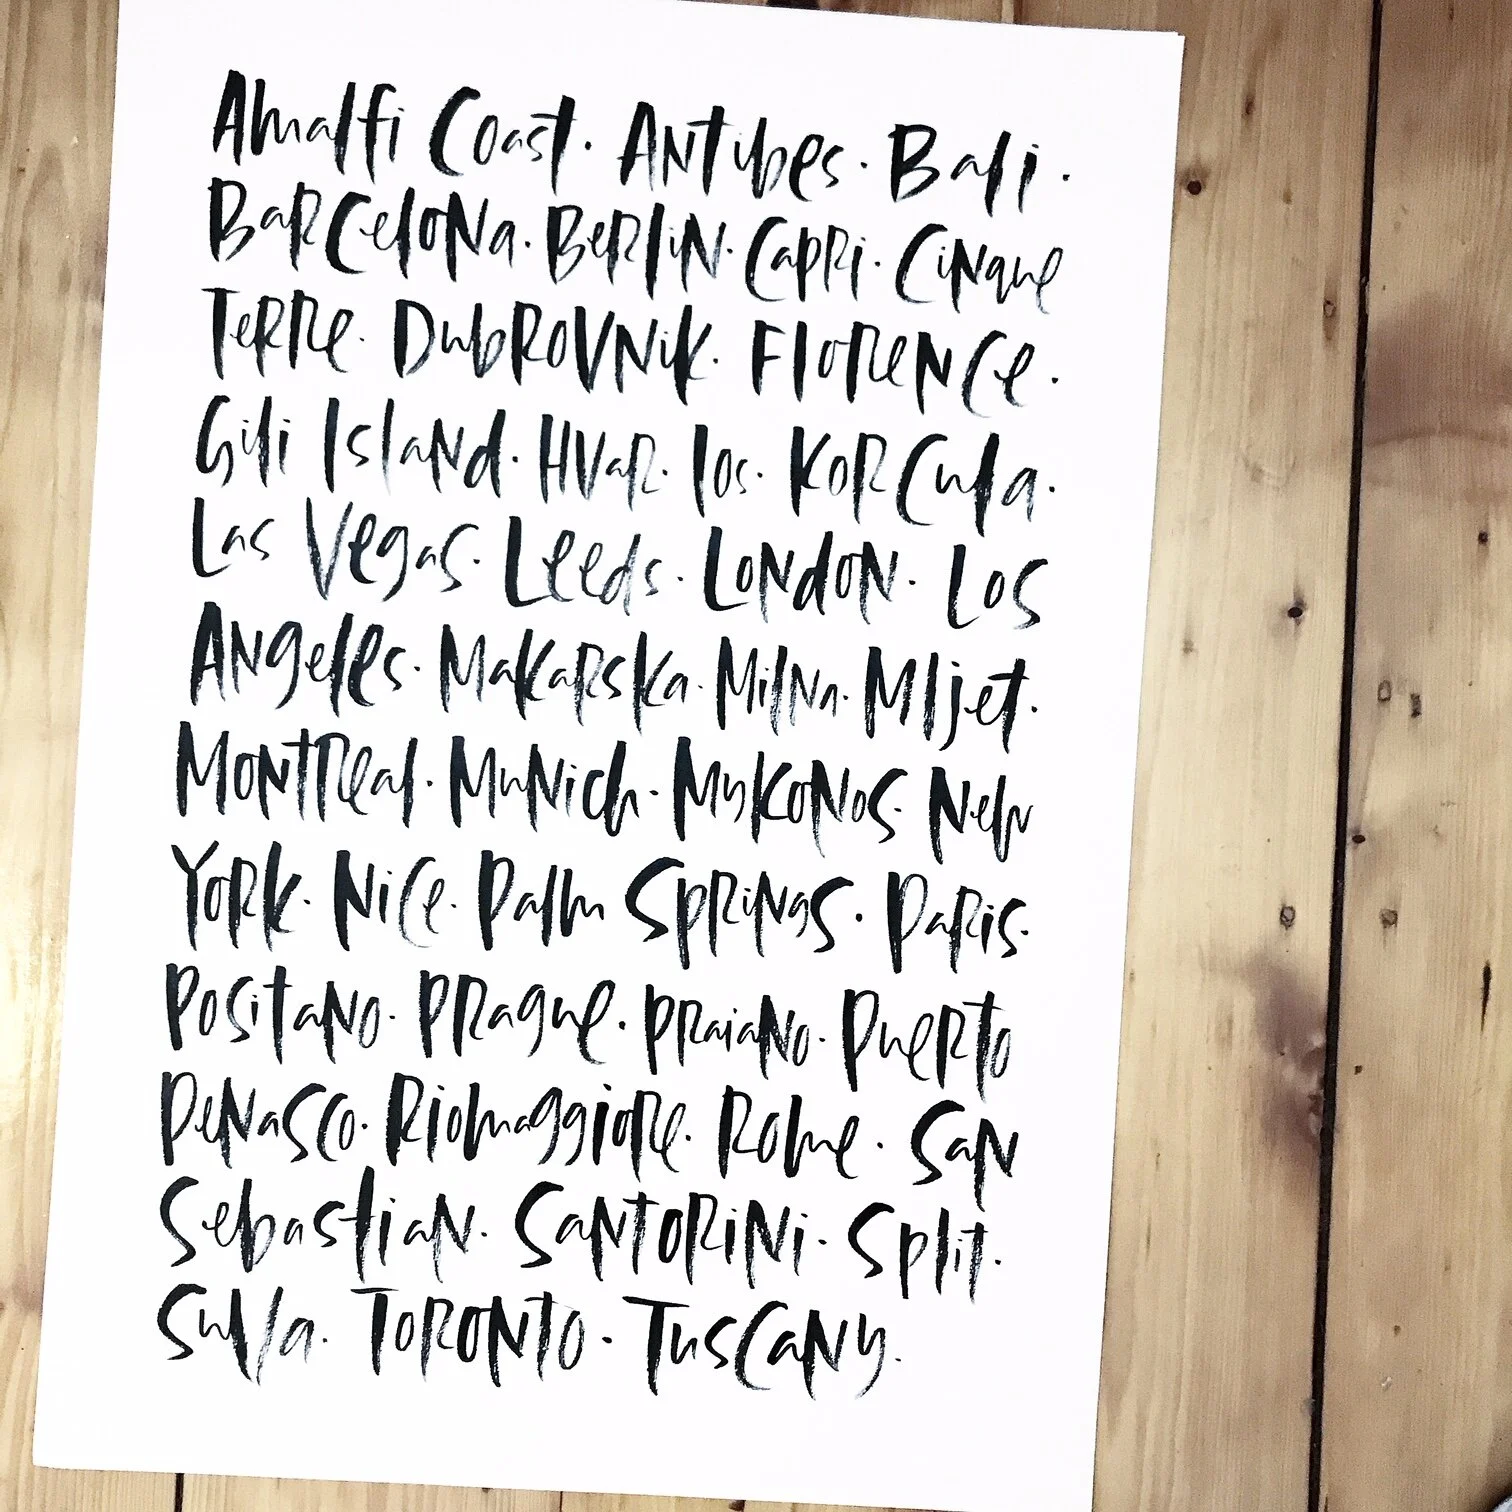 Amalfi Coast · Antibes · Bali ·
Barcelona · Berlin · Capri · Cinque
Terre · Dubrovnik · Florence ·
Gili Island · Hvar · Ios · Korcula ·
Las Vegas · Leeds · London · Los
Angeles · Makarska · Milna · Mljet ·
Montreal · Munich · Mykonos · New
York · Nice · Palm Springs · Paris ·
Positano · Prague · Praiano · Puerto
Penasco · Riomaggiore · Rome · San
Sebastian · Santorini · Split ·
Suva · Toronto · Tuscany.